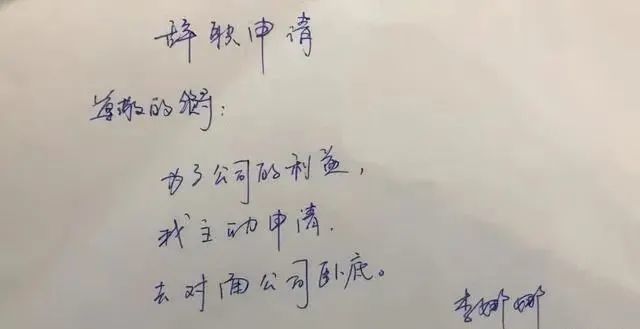 辞职申请
尊敬的领导:
为了公司的利益,
我主动申请.
去对面公司卧底。
李娜娜